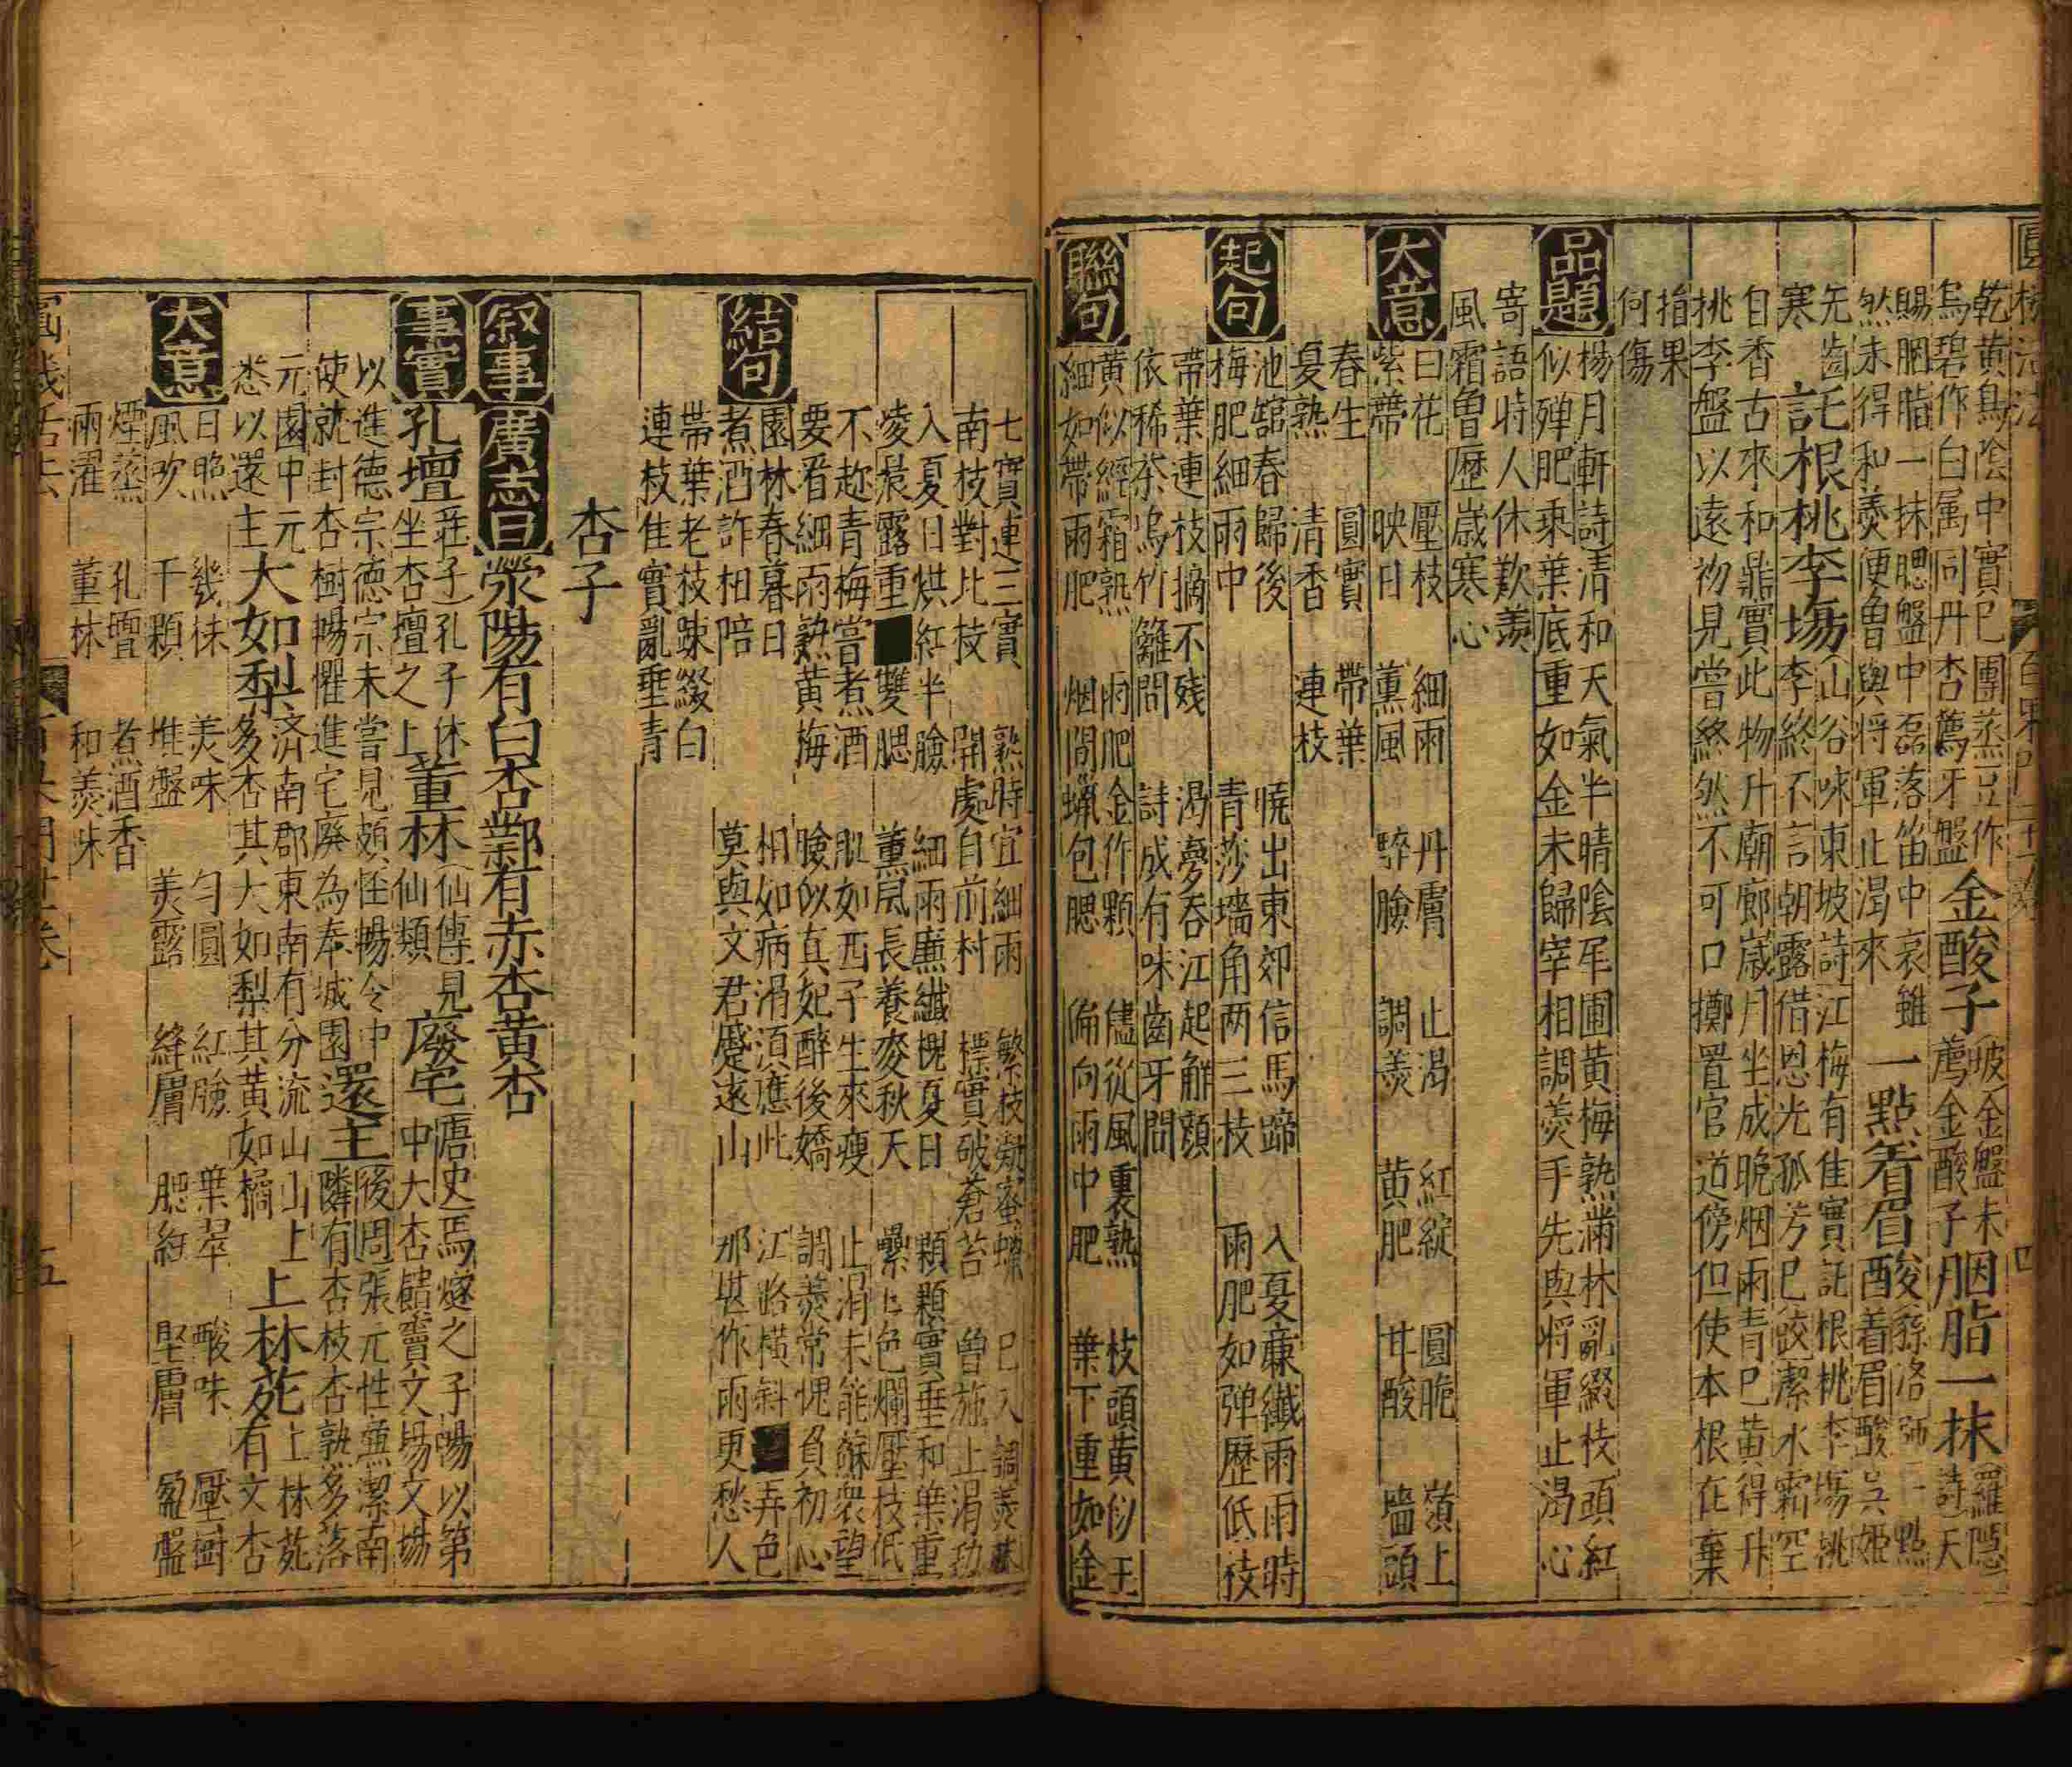 乾黃鳥陰中實已團蒸豆作
烏碧作白属同丹杏薦牙盤
金酸子
坡金盤未
薦金酸子
胭脂一抹
羅隱
詩天
賜胭脂一抹腮盤中磊落笛中哀雖
然未得和羮便曾與將軍止渴來
一點着眉酸
着眉酸吳姬
先齒
寒
託根桃李塲
山谷味東坡詩江梅有佳實託根桃李塲桃
李終不言朝露借恩光孤芳已皎潔水霜空
自香古來和鼎實此物升廟廊歲月坐成晚烟雨青已黃得升
挑李盤以遠初見嘗終然不可口擲置官道傍但使本根在棄
指果
何傷
品題
楊月軒詩清和天氣半晴陰圃黃梅熟滿林亂綴枝頭紅
似殫肥乘葉底重如金未歸宰相調羮手先與將軍止渴心
寄語時人休歎羨
風霜曽歴歲寒心
大意
白花 壓枝 細雨 丹膚 止渴 紅綻 圓脆 嶺上
紫蔕 映日 薰風 醉臉 調羮 黃肥 甘酸 墻頭
春生 圓實 帶葉
夏熟 清香 連枝
起句
池舘春歸後 曉出東郊信馬蹄 入夏廉纖雨雨時
梅肥細雨中 青莎墻角两三枝 雨肥如弾壓低枝
帶葉連枝摘不残 渴夢吞江起解顔
依稀茶塢竹籬間 詩成有味齒牙間
聯句
黃似經霜熟 雨肥金作顆 儘從風裏熟 枝頭黃似玉
細如帶雨肥 烟間蠟包腮 偏向雨中肥 葉下重如金
七實連三實 熟時宜細雨 繁枝凝蜜蠟 已入調羮
南枝對比枝 開處自前村 標實破蒼苔 曽施止渴功
入夏日烘紅半臉 細雨廉纖槐夏日 顆顆實垂和葉重
凌晨露重■雙腮 薰風長養麥秋天 纍纍色爛壓枝低
不趂青梅嘗煮酒 肌如西子生來瘦 止渴未能蘇衆望
要看細雨熟黃梅 臉似真妃醉後嬌 調羮常愧負初心
結句
園林春暮日 相如病渴須應此 江路橫斜■弄色
煮酒詐相陪 莫與文君蹙遠山 那堪作雨更愁人
帶葉老枝疎綴白
連枝佳實亂垂青
杏子
叙事
廣志曰
滎陽有白杏鄴有赤杏黃杏
事實
孔壇
莊子孔子休
坐杏壇之上
董林
仙傳見
仙類
廢宅
唐史馬燧之子暢以第
中大杏饋竇文塲文塲
以進德宗德宗未嘗見頗恠暢令中
使就封杏樹暢懼進宅廢為奉城園
還主
後周張元性亷潔南
隣有杏枝杏熟多落
元園中元
悉以還主
大如梨
濟南郡東南有分流山山上
多杏其大如梨其黃如橘
上林苑
上林苑
有文杏
大意
日照 幾株 羮味 勻圓 紅臉 葉翠 酸味 壓樹
風吹 千顆 堆盤 羮露 絳膚 肥紅 堅膚 盤
煙蒸 孔壇 煮酒香
雨濯 董林 和羮味
五